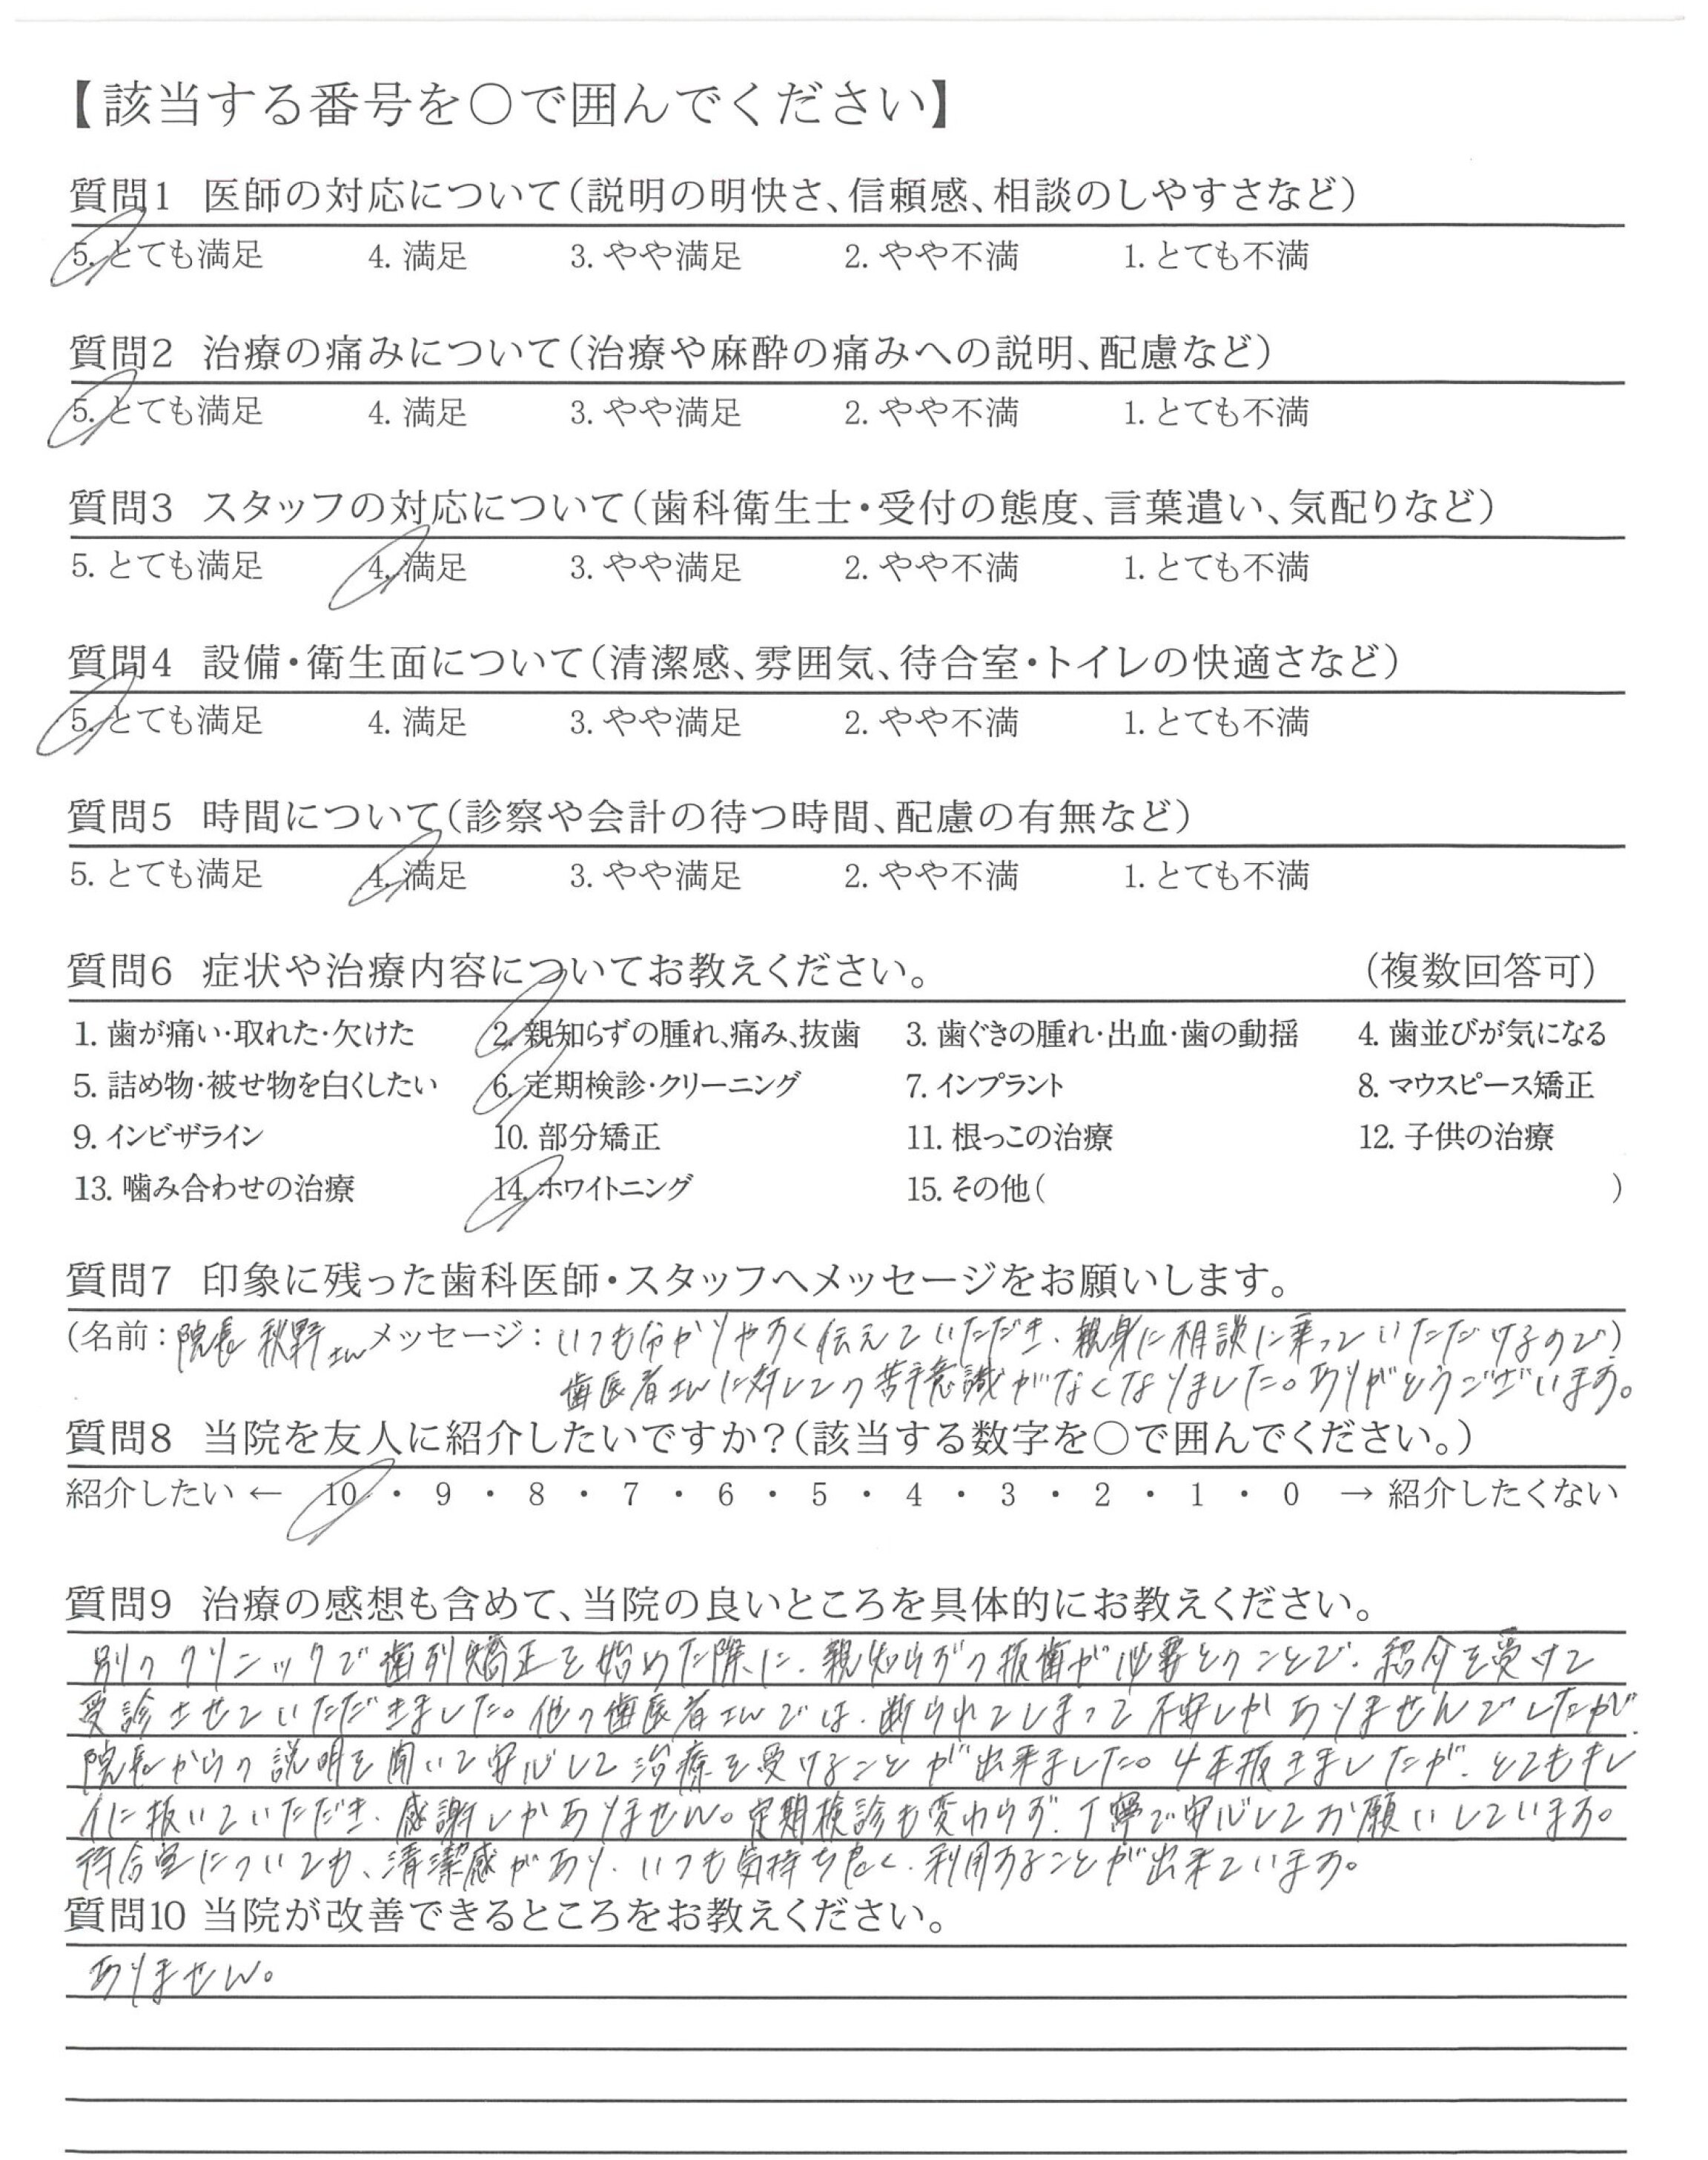 【該当する番号を○で囲んでください】
質問1 医師の対応について(説明の明快さ、信頼感、相談のしやすさなど)
5. とても満足 4. 満足 3. やや満足 2. やや不満 1. とても不満
質問2 治療の痛みについて(治療や麻酔の痛みへの説明、配慮など)
5. とても満足 4. 満足 3. やや満足 2. やや不満 1. とても不満
質問3 スタッフの対応について(歯科衛生士・受付の態度、言葉遣い、気配りなど)
5. とても満足 4. 満足 3. やや満足 2. やや不満 1. とても不満
質問4 設備・衛生面について(清潔感、雰囲気、待合室・トイレの快適さなど)
5. とても満足 4. 満足 3. やや満足 2. やや不満 1. とても不満
質問5 時間について(診察や会計の待つ時間、配慮の有無など)
5. とても満足 4. 満足 3. やや満足 2. やや不満 1. とても不満
質問6 症状や治療内容についてお教えください。 (複数回答可)
1. 歯が痛い・取れた・欠けた 2. 親知らずの腫れ、痛み、抜歯 3. 歯ぐきの腫れ・出血・歯の動揺 4. 歯並びが気になる
5. 詰め物・被せ物を白くしたい 6. 定期検診・クリーニング 7. インプラント 8. マウスピース矯正
9. インビザライン 10. 部分矯正 11. 根っこの治療 12. 子供の治療
13. 噛み合わせの治療 14. ホワイトニング 15. その他( )
質問7 印象に残った歯科医師・スタッフへメッセージをお願いします。
(名前：院長 秋野さん メッセージ：いつも分かりやすく伝えていただき、親身に相談に乗っていただけるので)
歯医者さんに対しての苦手意識がなくなりました。ありがとうございます。
質問8 当院を友人に紹介したいですか?(該当する数字を○で囲んでください。)
紹介したい ← 10 ・ 9 ・ 8 ・ 7 ・ 6 ・ 5 ・ 4 ・ 3 ・ 2 ・ 1 ・ 0 → 紹介したくない
質問9 治療の感想も含めて、当院の良いところを具体的にお教えください。
別のクリニックで歯列矯正を始めた際に、親知らずの抜歯が必要とのことで、紹介を受けて
受診させていただきました。他の歯医者さんでは、断られてしまって不安しかありませんでしたが、
院長からの説明を聞いて安心して治療を受けることが出来ました。4本抜きましたが、とてもキレ
イに抜いていただき、感謝しかありません。定期検診も変わらず、丁寧で安心してお願いしています。
待合室についても、清潔感があり、いつも気持ち良く、利用することが出来ています。
質問10 当院が改善できるところをお教えください。
ありません。